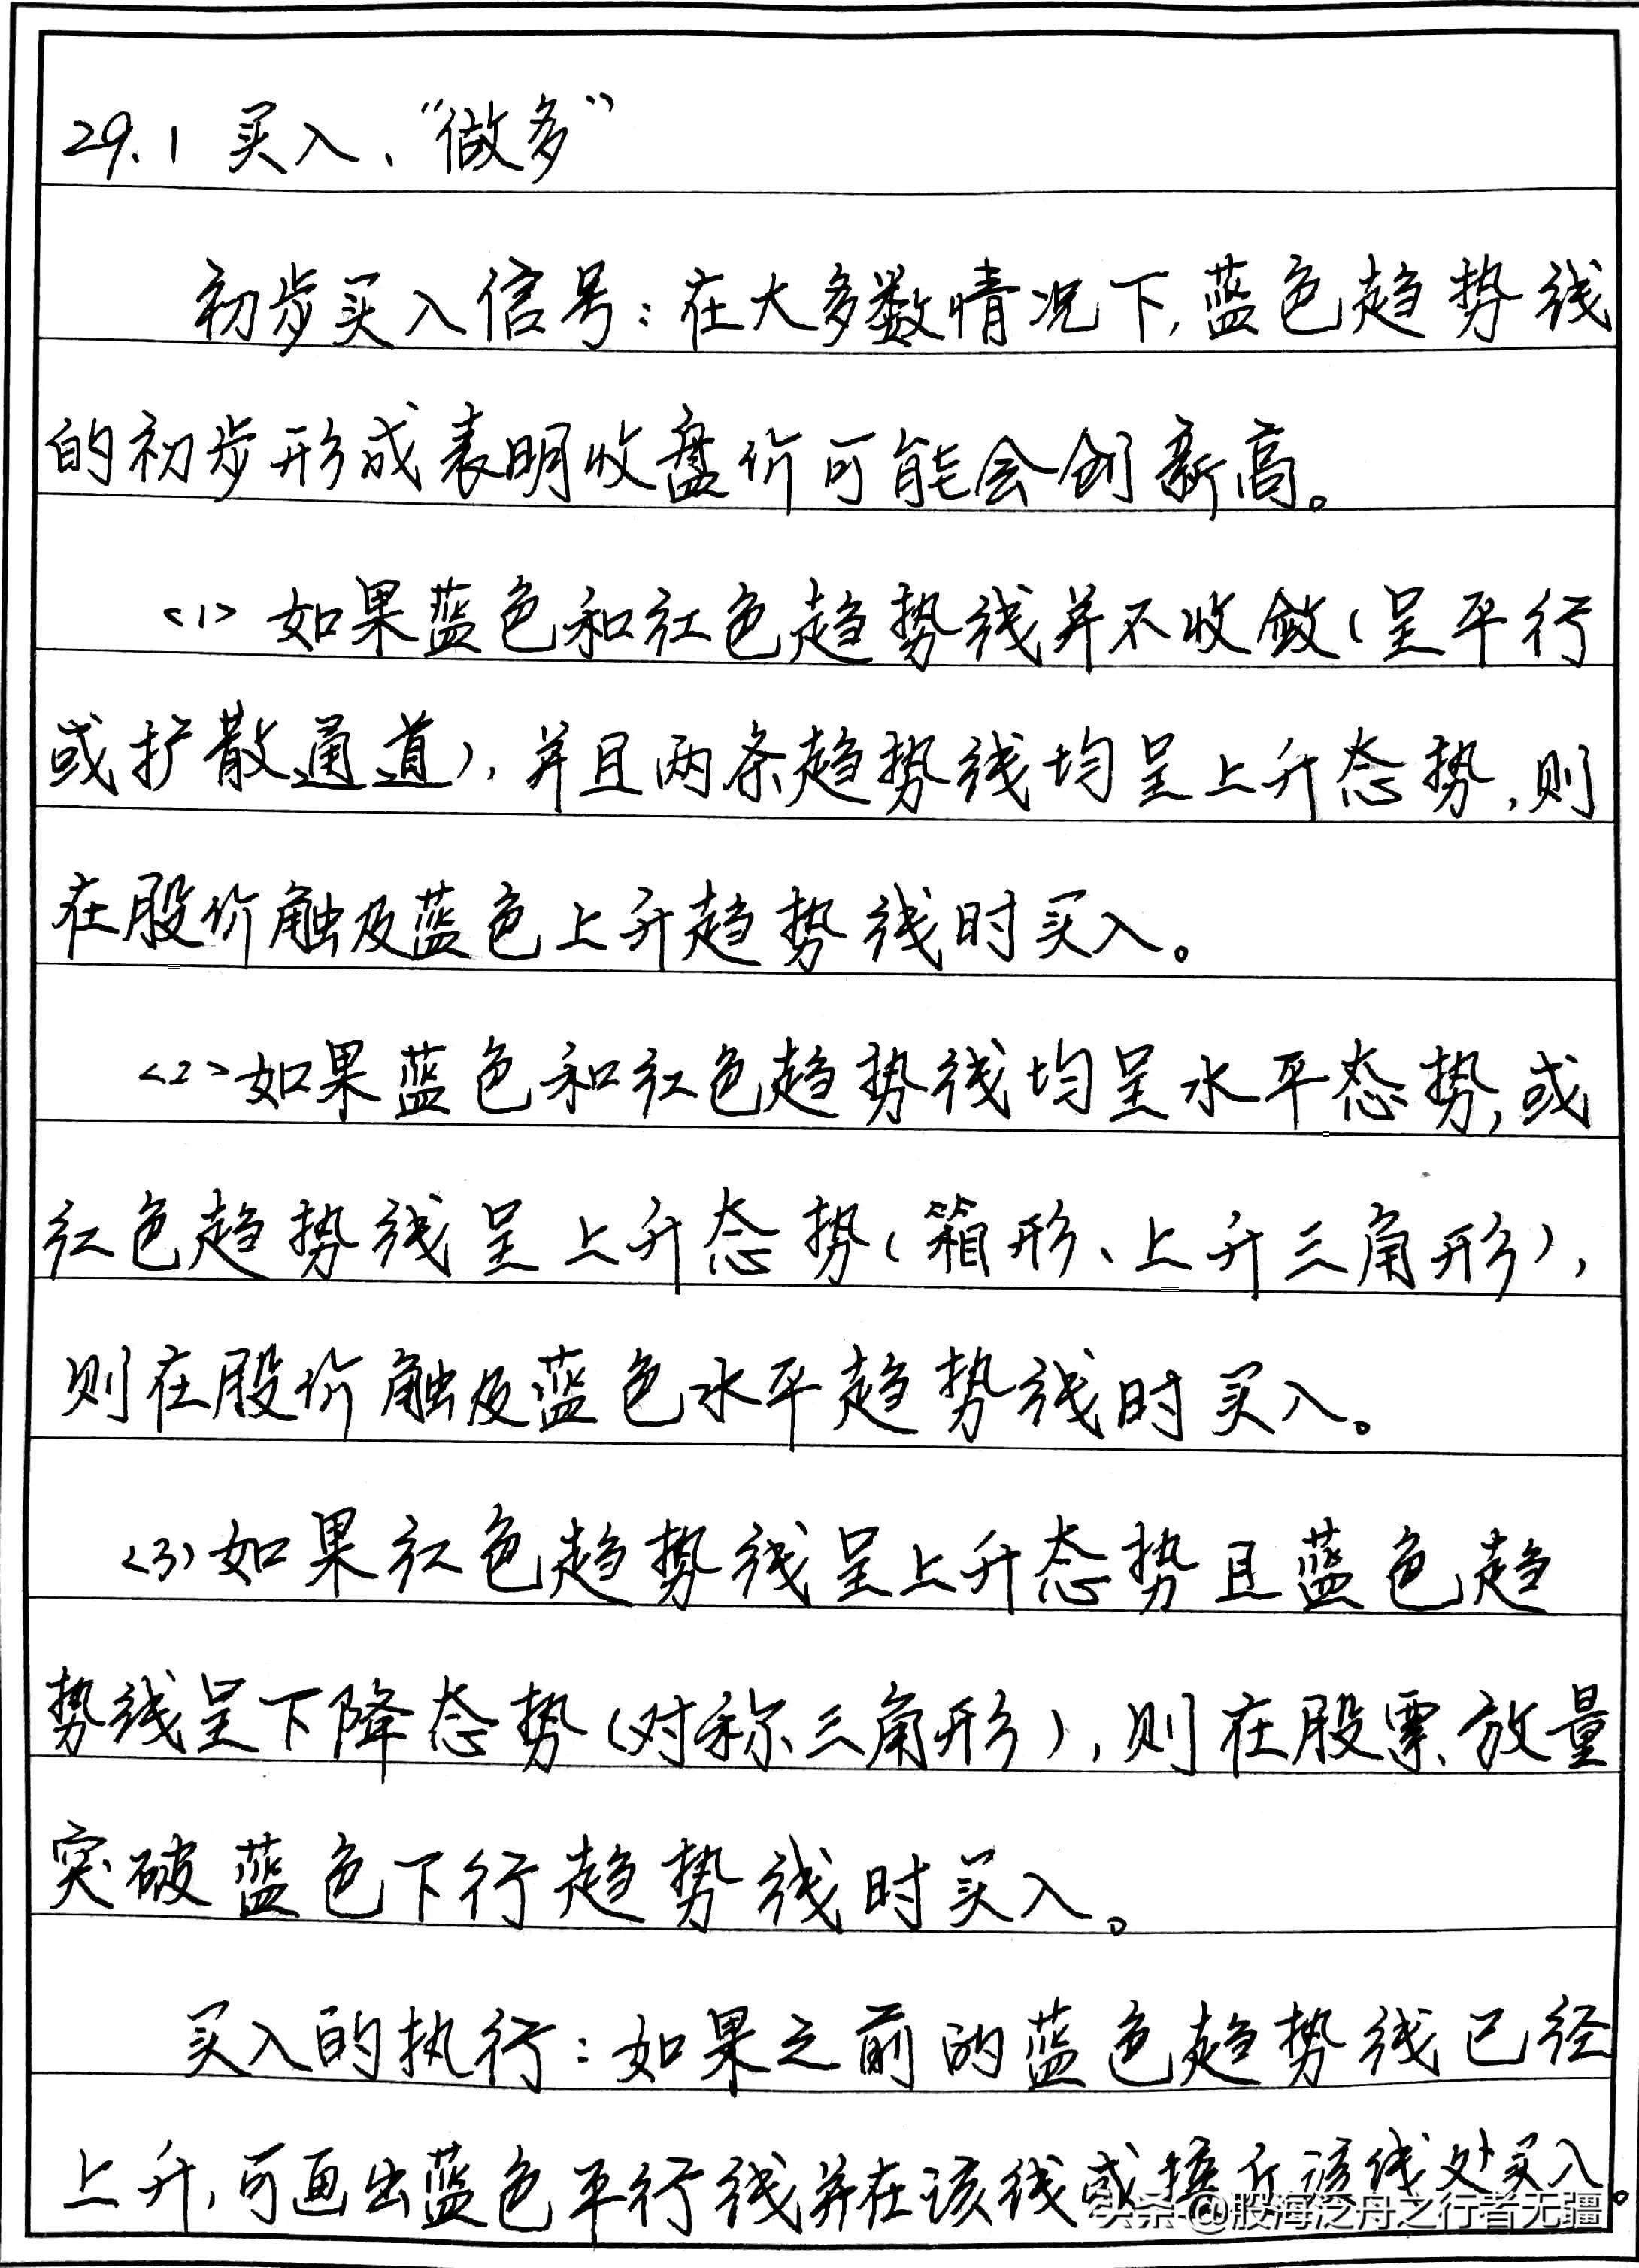 29.1 买入、“做多”
初步买入信号：在大多数情况下，蓝色趋势线
的初步形成表明收盘价可能会创新高。
<1> 如果蓝色和红色趋势线并不收敛（呈平行
或扩散通道），并且两条趋势线均呈上升态势，则
在股价触及蓝色上升趋势线时买入。
<2> 如果蓝色和红色趋势线均呈水平态势，或
红色趋势线呈上升态势（箱形、上升三角形），
则在股价触及蓝色水平趋势线时买入。
<3> 如果红色趋势线呈上升态势且蓝色趋
势线呈下降态势（对称三角形），则在股票放量
突破蓝色下行趋势线时买入。
买入的执行：如果之前的蓝色趋势线已经
上升，可画出蓝色平行线并在该线或接近该线处买入。
头条 @股海泛舟之行者无疆